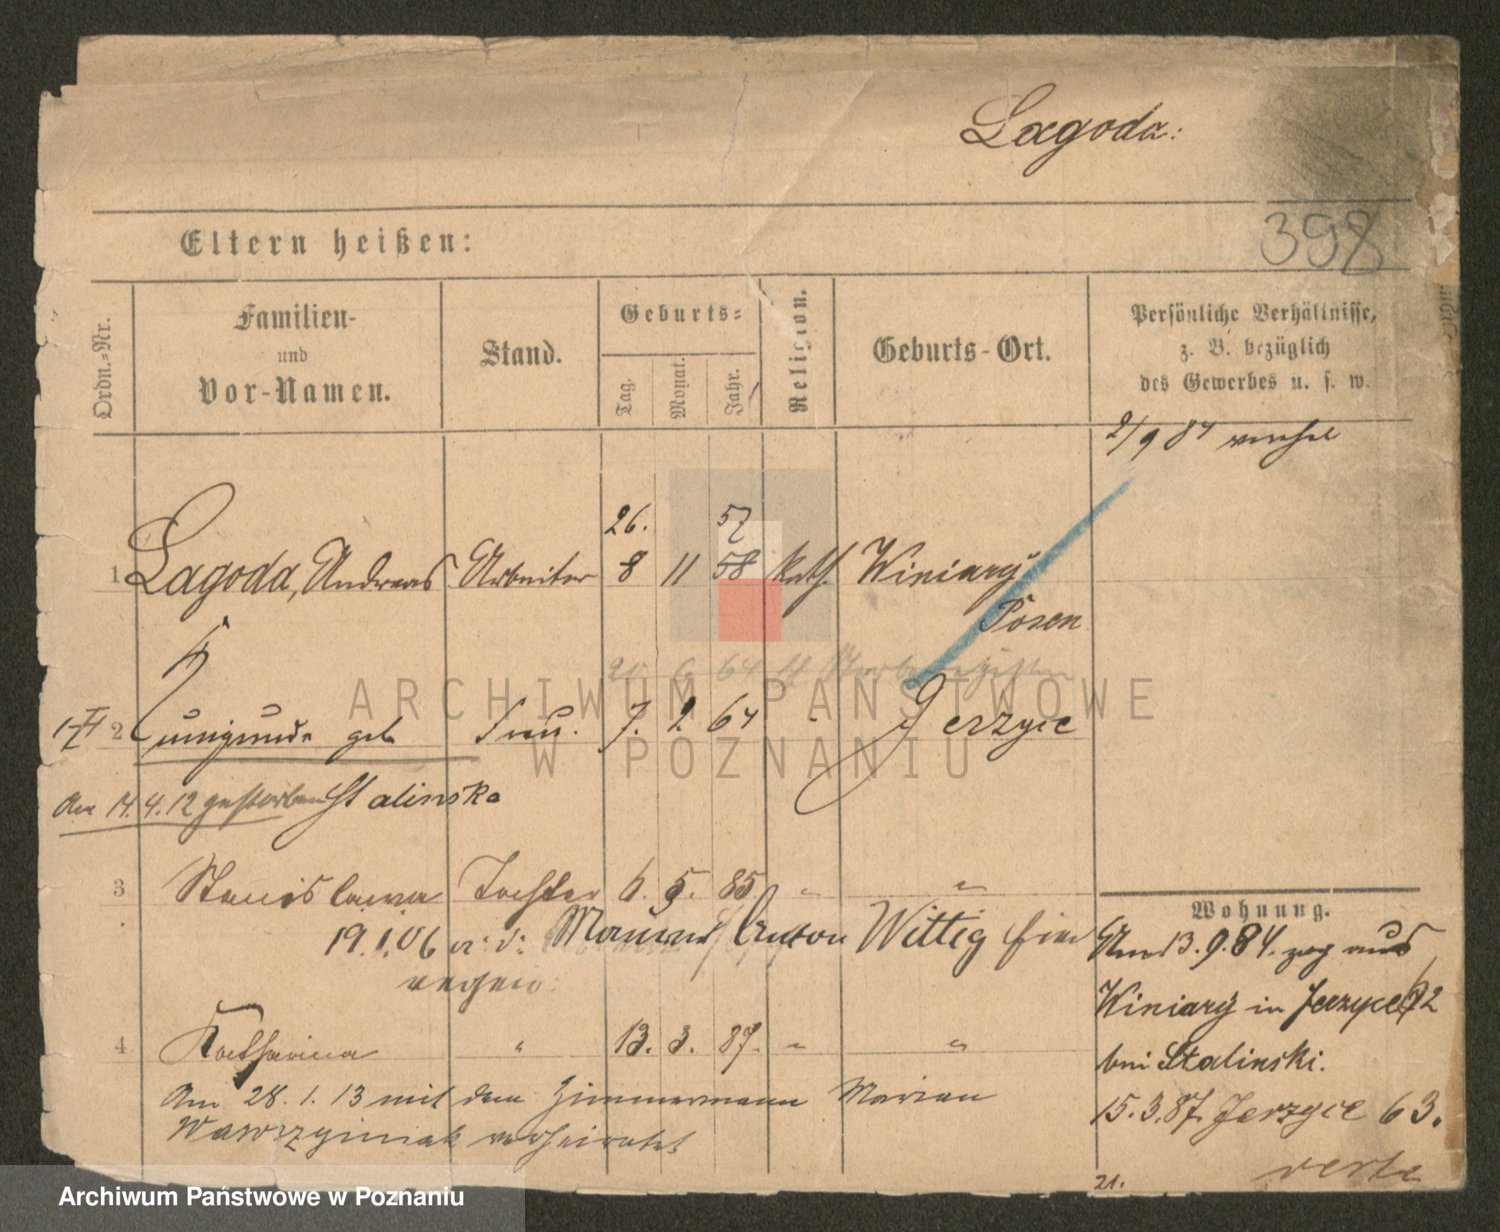 Lagoda:
398
Eltern heißen:
Ordn.-Nr.
Familien-
und
Vor-Namen.
Stand.
Geburts-
Tag.
Monat.
Jahr.
Religion.
Geburts-Ort.
Persönliche Verhältnisse,
z. B. bezüglich
des Gewerbes u. s. w.
2/9 84
26. 57
1 Lagoda, Andreas Arbeiter 8 11 58 kath. Winiary
Posen
ARCHIWUM PAŃSTWOWE
W POZNANIU
2 Kunigunde geb Frau. 7. 2. 64 " Jerzyce
Am 14.4.12 gestorben Stalinska
3 Stanislawa Tochter 6. 5. 85 " "
19.1.06 Anton Wittig
Wohnung.
Am 13.9.84. zog aus
Winiary in Jerzyce 62
bei Stalinski.
15.3.87. Jerzyce 63.
verte
4 Katharina " 13. 3. 87. " "
Am 28.1.13 mit dem Zimmermann Marian
Wawrzyniak verheiratet
21.
Archiwum Państwowe w Poznaniu